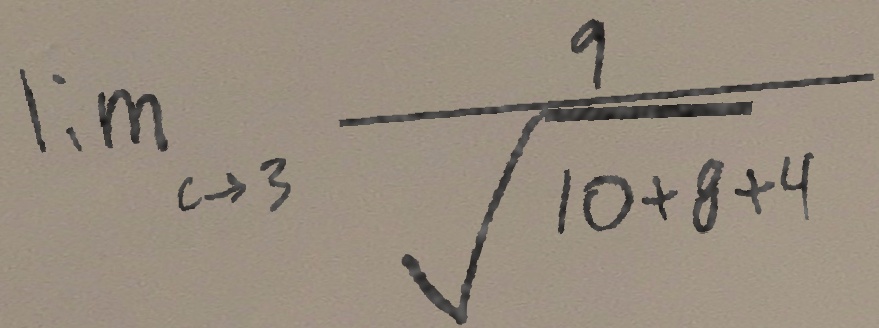 lim c→3 9/√(10+8+4)